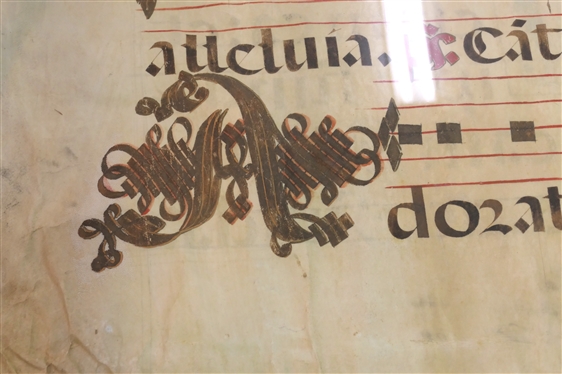 alleluia. ℟. Cāt
A
dorat